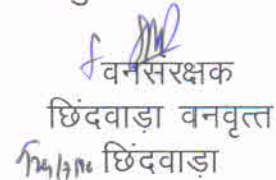 वनसंरक्षक
छिंदवाड़ा वनवृत्त
छिंदवाड़ा